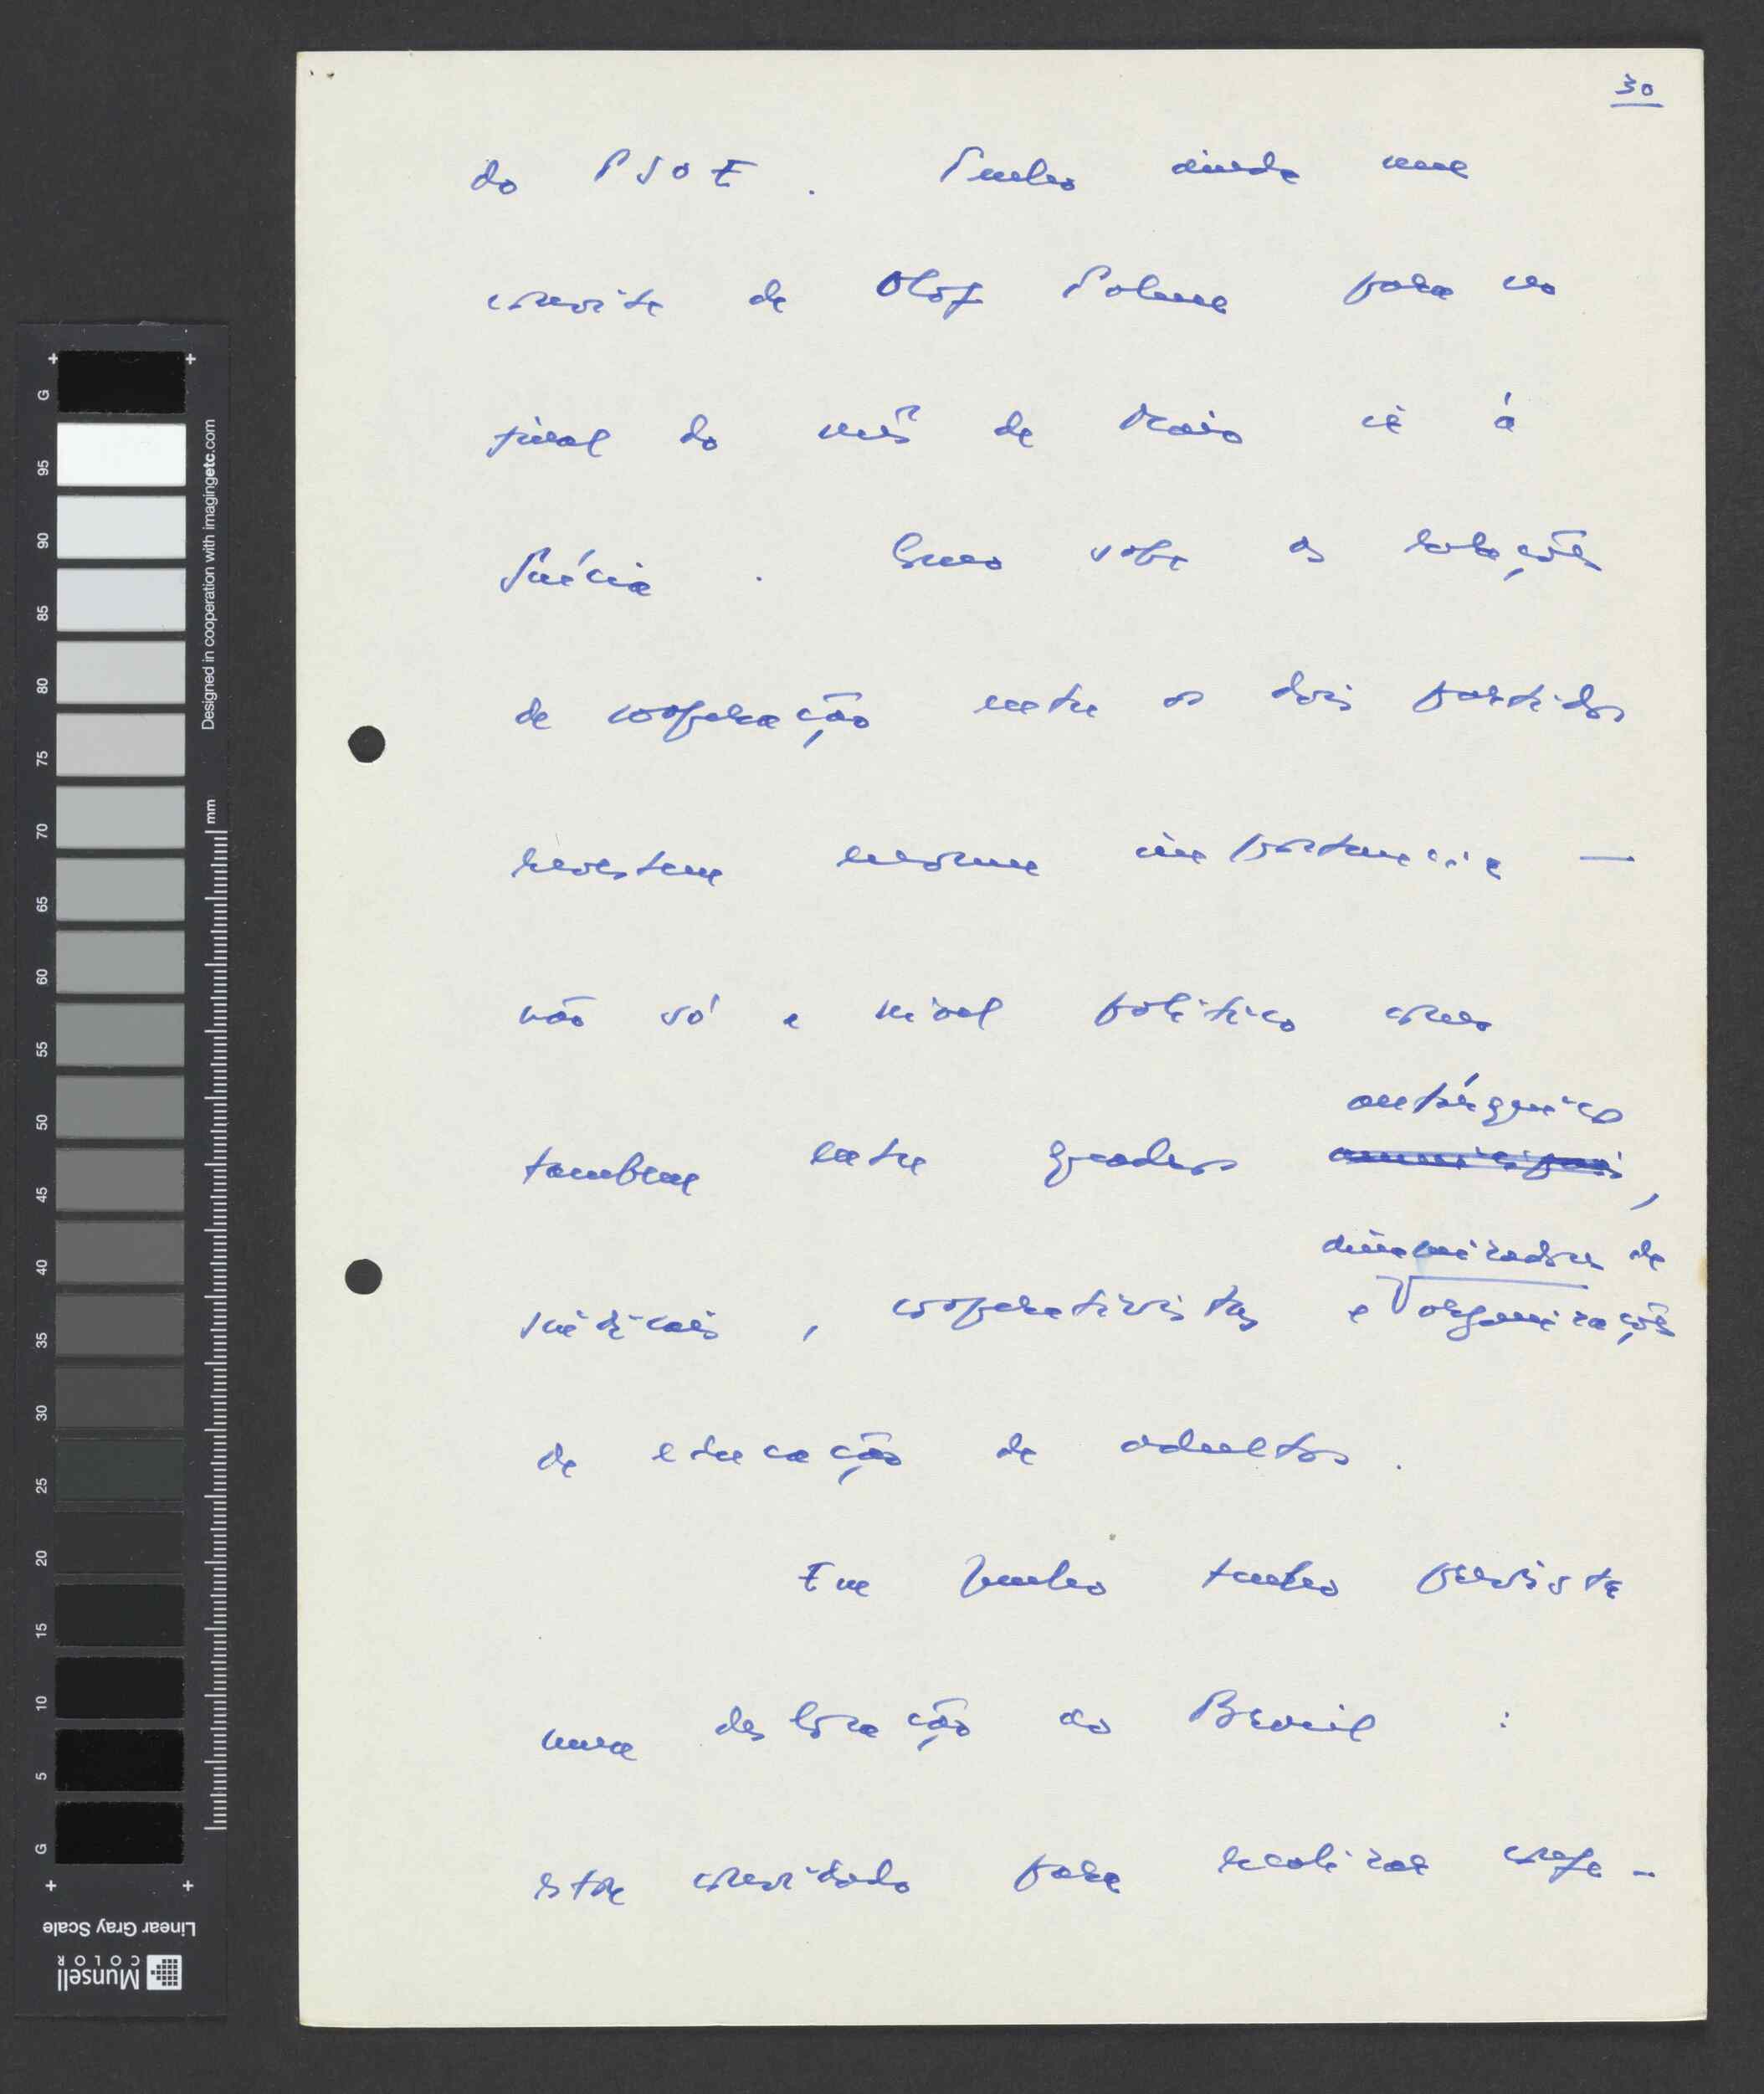 30
do PSOE. Tenho ainda um
convite de Olof Palme para no
final do mês de Maio ir à
Suécia. Como sabe as relações
de cooperação entre os dois partidos
revestem enorme importancia —
não só a nivel politico como
autárquicos
tambem entre quadros ,
dinamizadores de
sindicais, cooperativistas e organizações
de educação de adultos.
Em Junho tenho prevista
uma deslocação ao Brasil :
estou convidado para realizar confe-
G 95 90 85 80 75 70 65 60 55 50 45 40 35 30 25 20 15 10 5 G
Designed in cooperation with imagingetc.com
mm
Linear Gray Scale
Munsell
COLOR